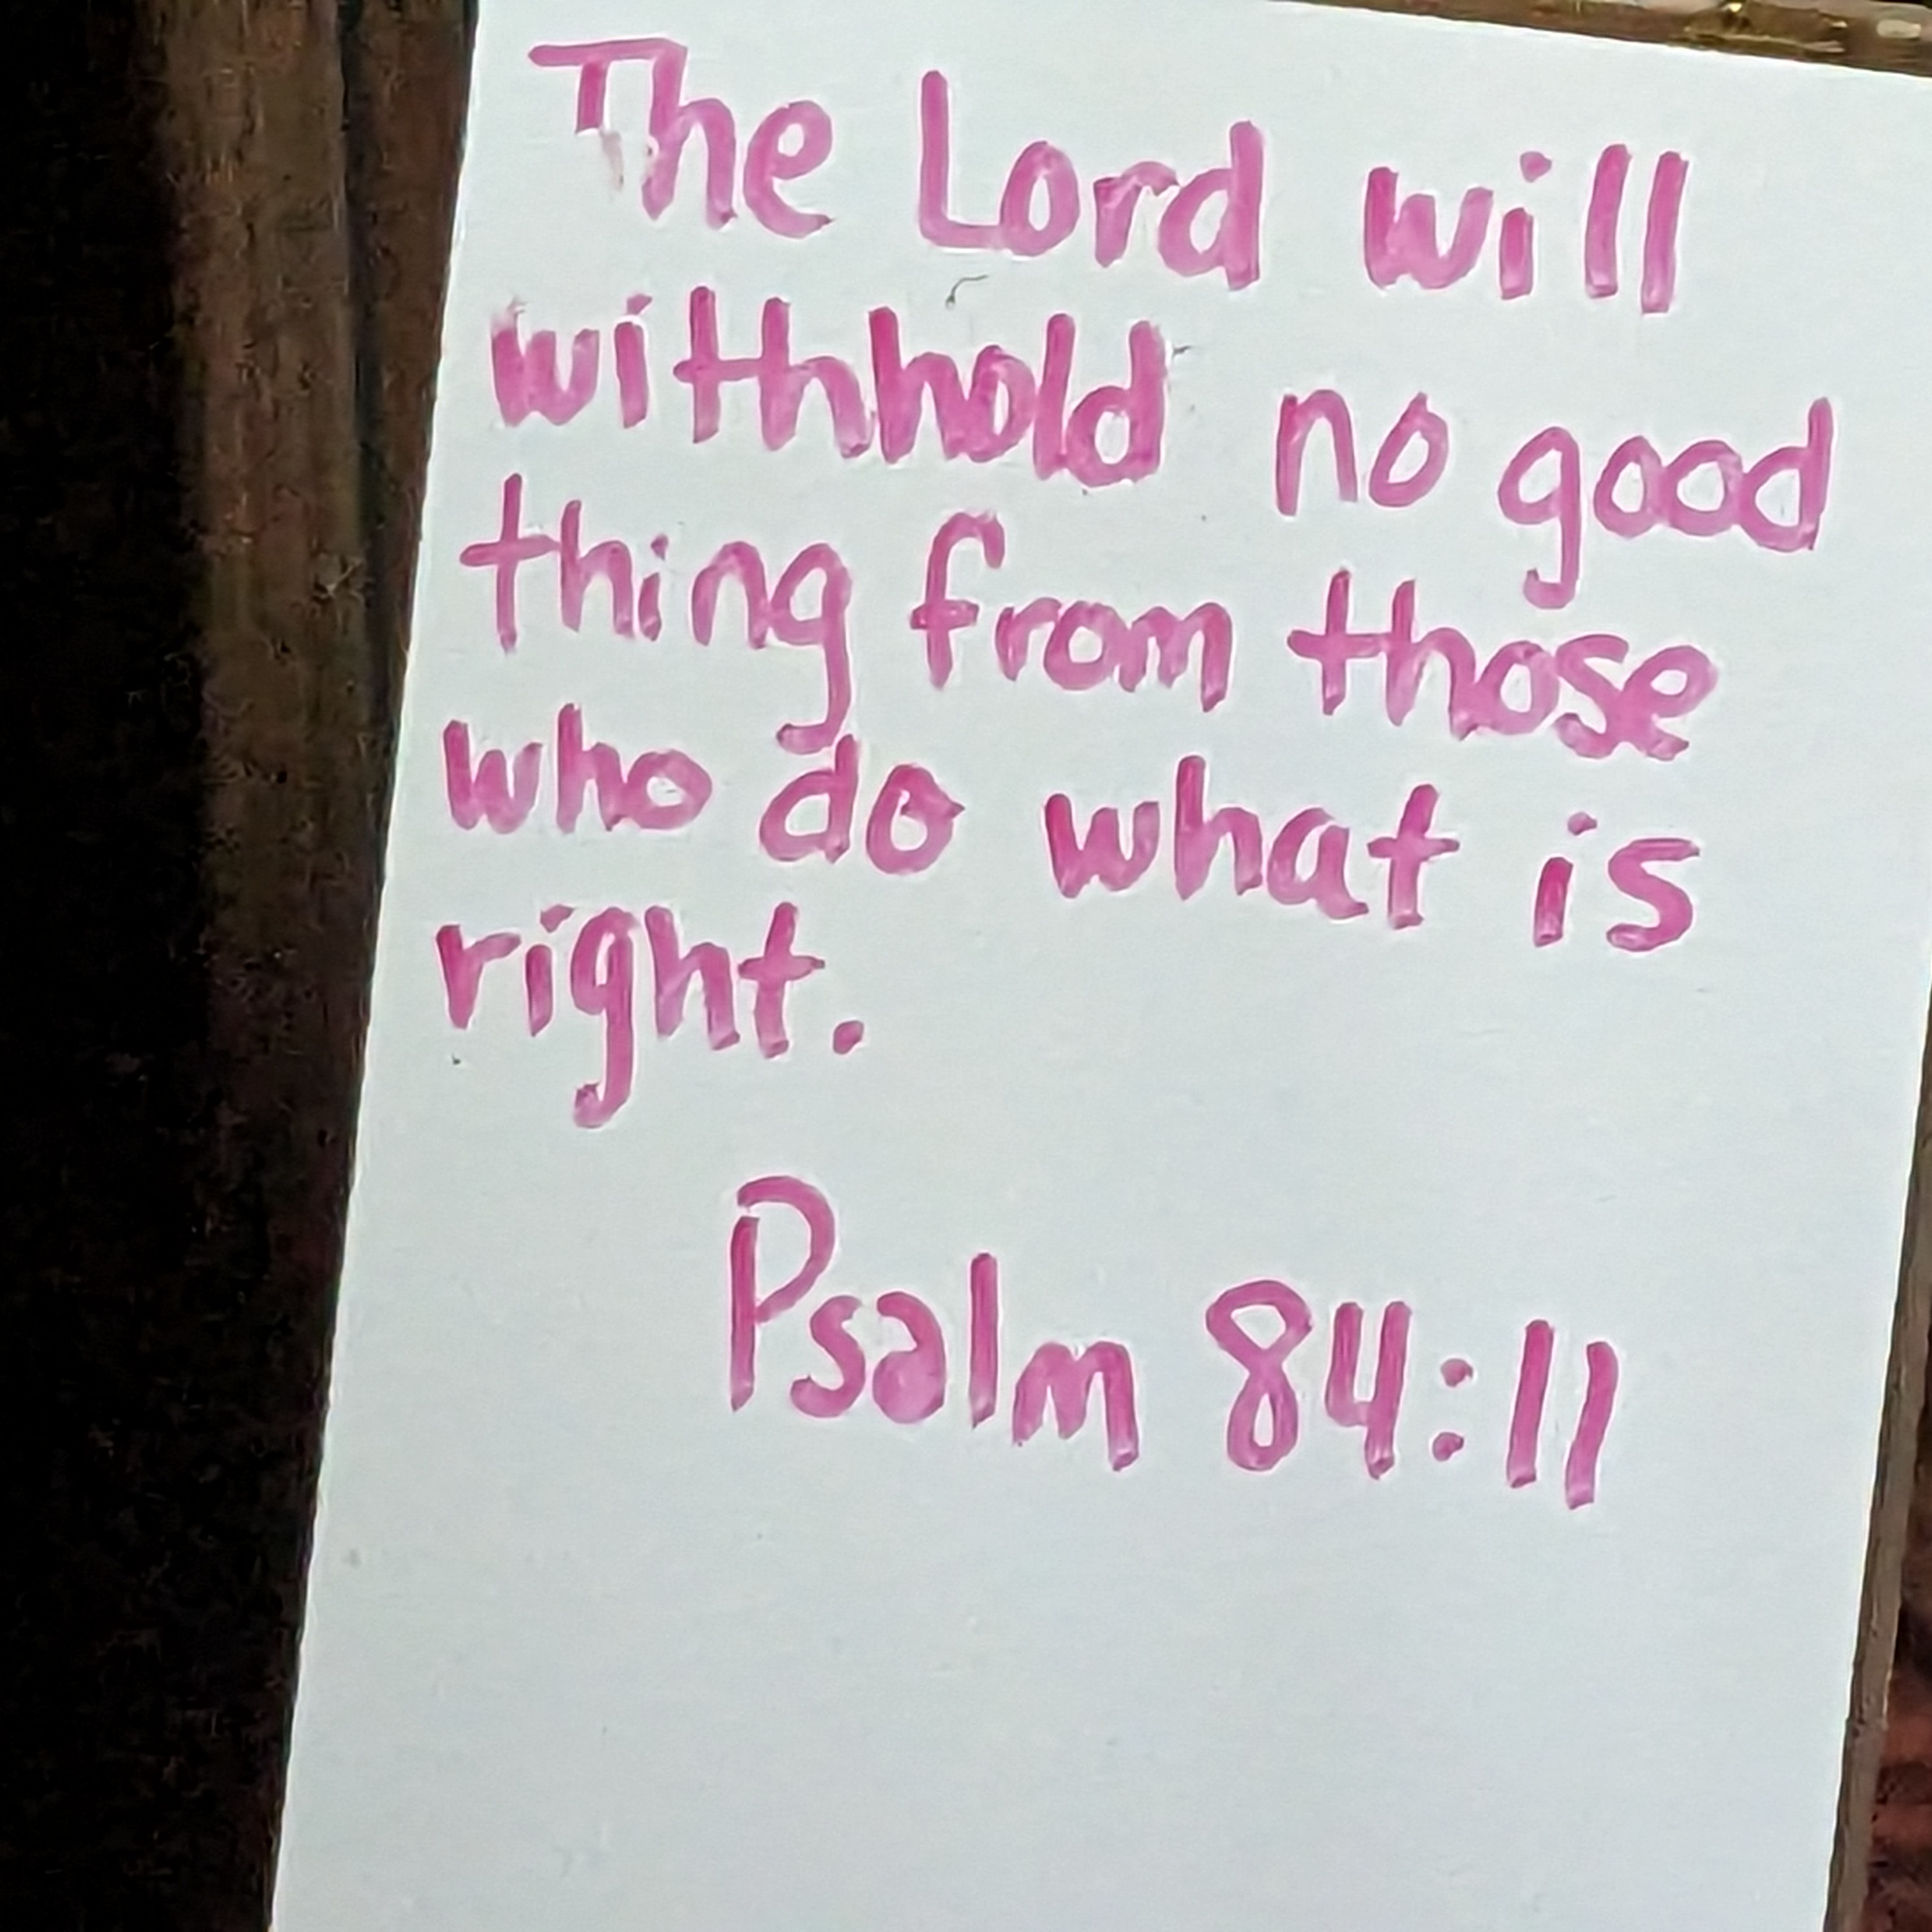 The Lord will
withhold no good
thing from those
who do what is
right.
Psalm 84:11